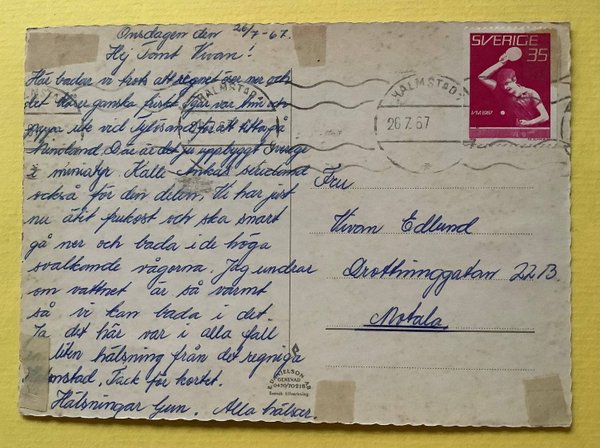 Onsdagen den 26/7-67.
Hej Tant Vivan!
Här badar vi trots att regnet öser ner och
det blåser ganska friskt. Igår var
ute vid Tylösand för att titta på
Miniland. Där är det ju uppbyggt Sverige
i miniatyr. Kalle Ankas
också för den delen. Vi har just
nu ätit frukost och ska snart
gå ner och bada i de höga
svalkande vågorna. Jag undrar
om vattnet är så varmt
så vi kan bada i det.
Ja det här var i alla fall
liten hälsning från det regniga
Halmstad. Tack för kortet.
Hälsningar Gun. Alla hälsar.
SVERIGE
35
VM 1967
HALMSTAD 1
26.7.67
HALMSTAD 1
Fru
Vivan Edlund
Drottninggatan 22 B
Motala
GENEVAD
0430/70218
Svensk tillverkning